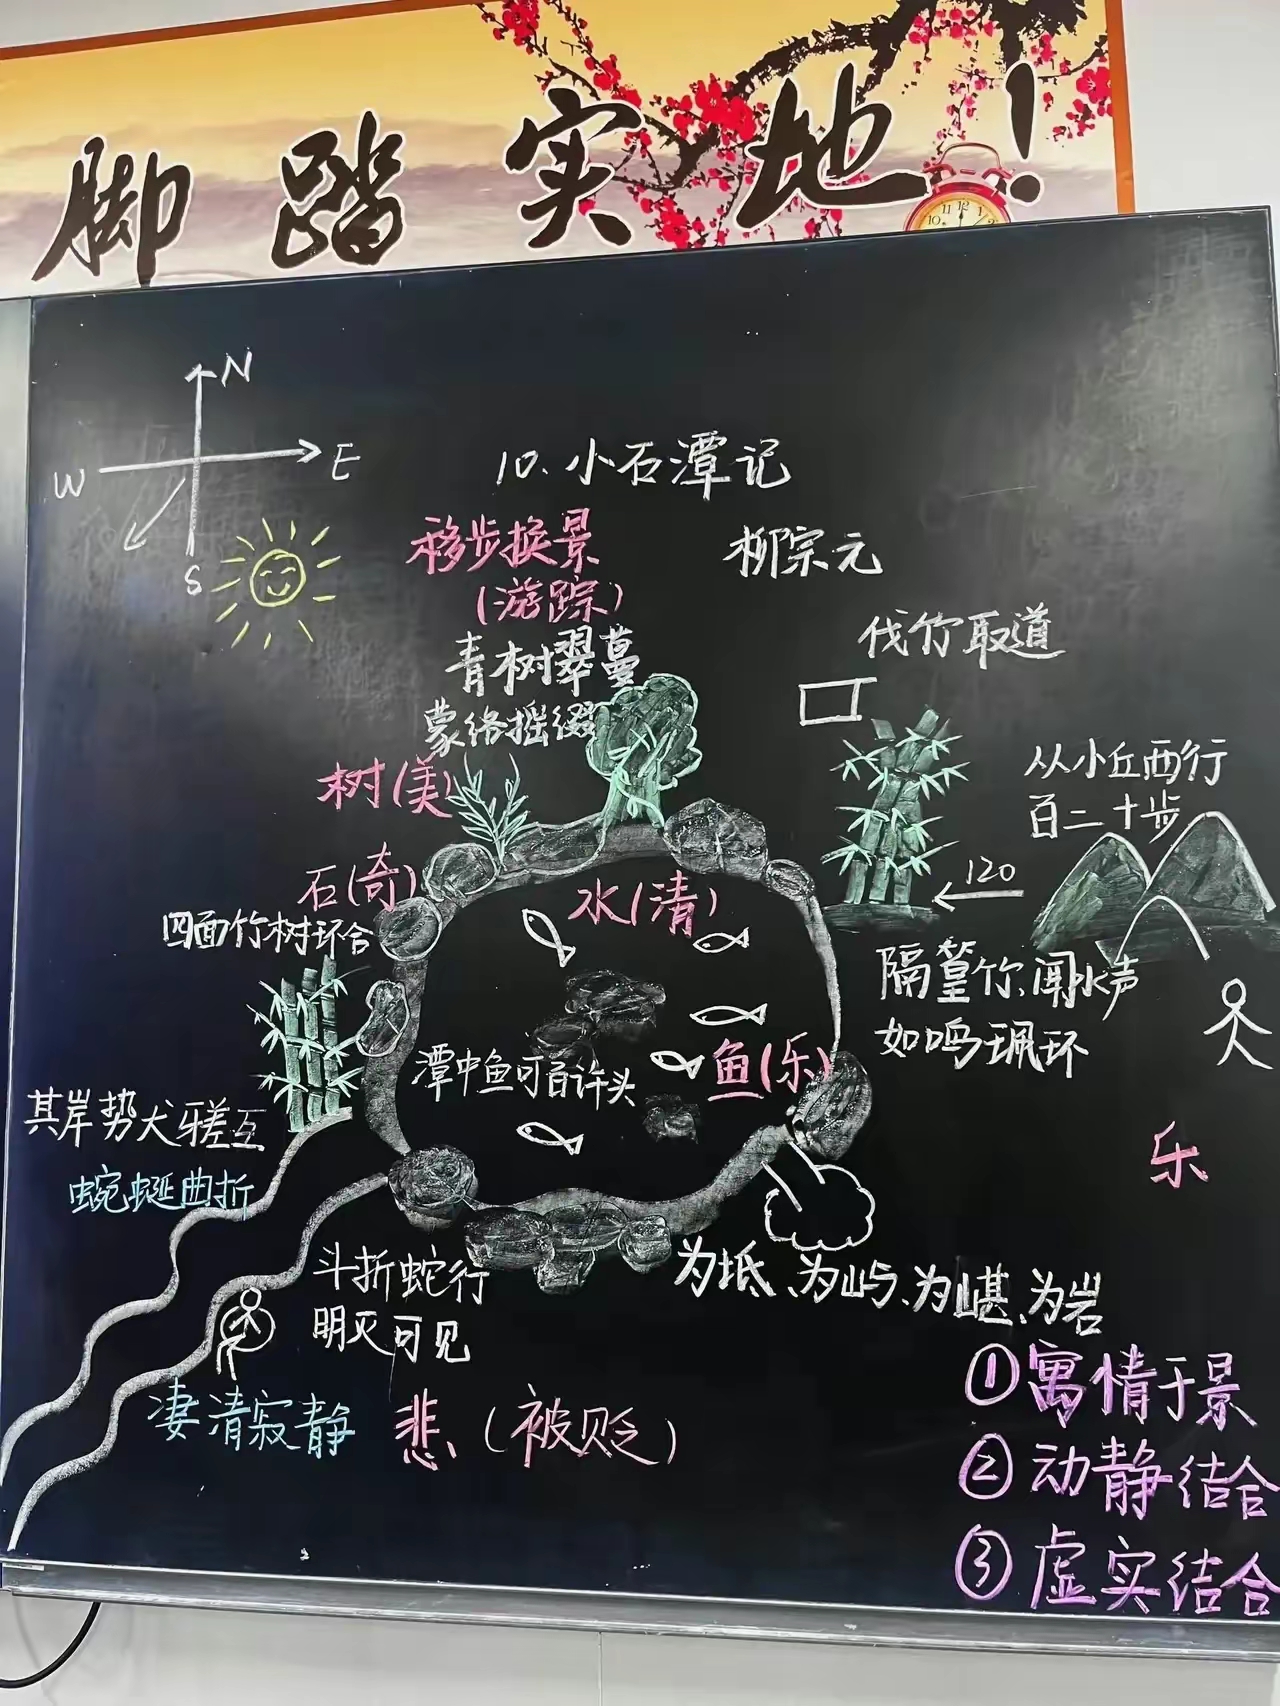 脚踏实地!
N
W
E
S
10. 小石潭记
移步换景
(游踪)
柳宗元
青树翠蔓
蒙络摇缀
伐竹取道
树(美)
从小丘西行
百二十步
120
石(奇)
水(清)
四面竹树环合
隔篁竹、闻水声
如鸣珮环
潭中鱼可百许头
鱼(乐)
其岸势犬牙差互
蜿蜒曲折
乐
斗折蛇行
明灭可见
为坻、为屿、为嵁、为岩
凄清寂静
悲 (被贬)
①寓情于景
②动静结合
③虚实结合